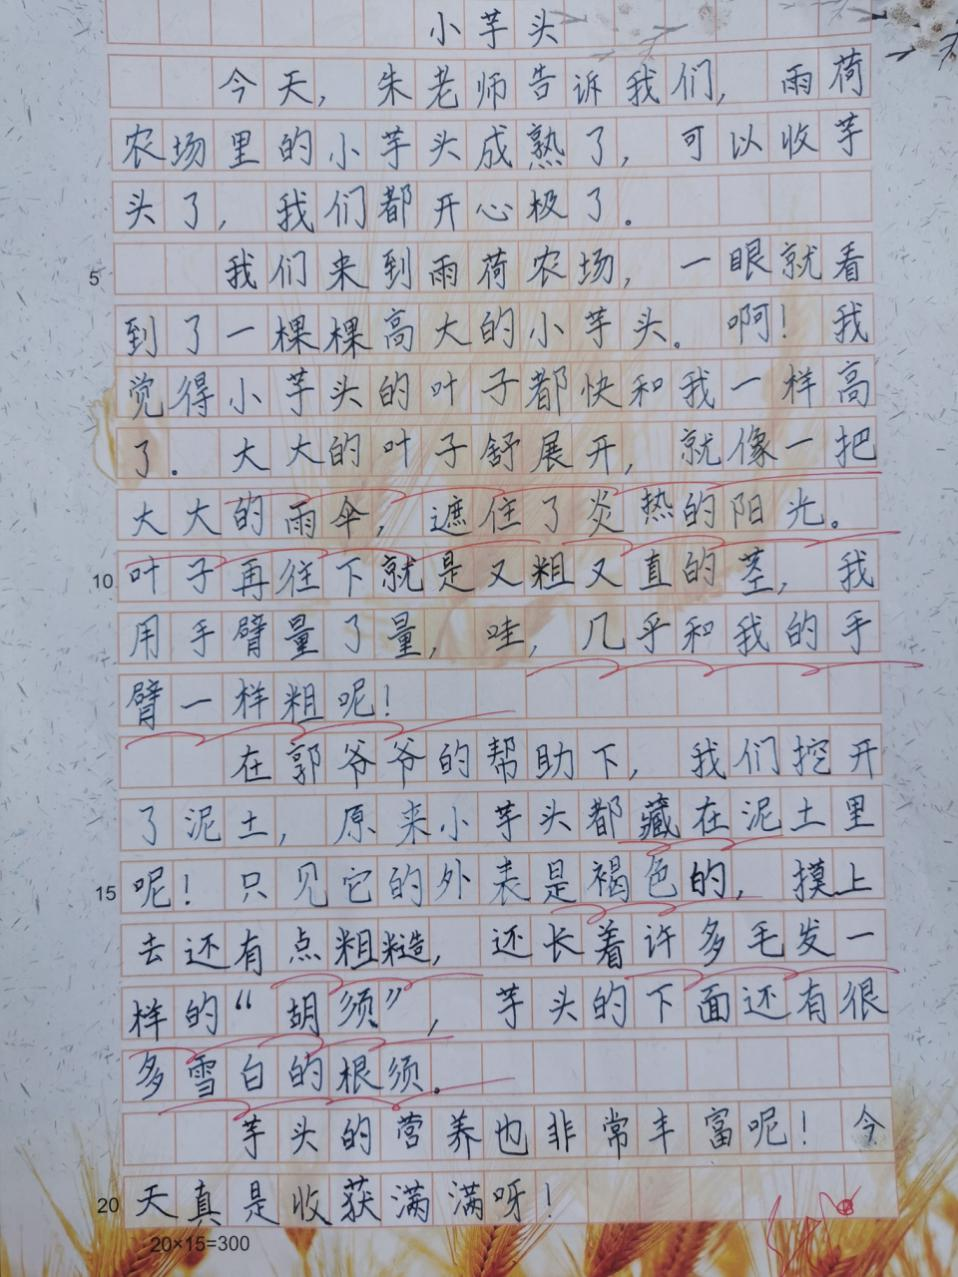 小芋头
今天，朱老师告诉我们，雨荷
农场里的小芋头成熟了，可以收芋
头了，我们都开心极了。
5 我们来到雨荷农场，一眼就看
到了一棵棵高大的小芋头。啊！我
觉得小芋头的叶子都快和我一样高
了。大大的叶子舒展开，就像一把
大大的雨伞，遮住了炎热的阳光。
10 叶子再往下就是又粗又直的茎，我
用手臂量了量，哇，几乎和我的手
臂一样粗呢！
在郭爷爷的帮助下，我们挖开
了泥土，原来小芋头都藏在泥土里
15 呢！只见它的外表是褐色的，摸上
去还有点粗糙，还长着许多毛发一
样的“胡须”，芋头的下面还有很
多雪白的根须。
芋头的营养也非常丰富呢！今
20 天真是收获满满呀！
20×15=300